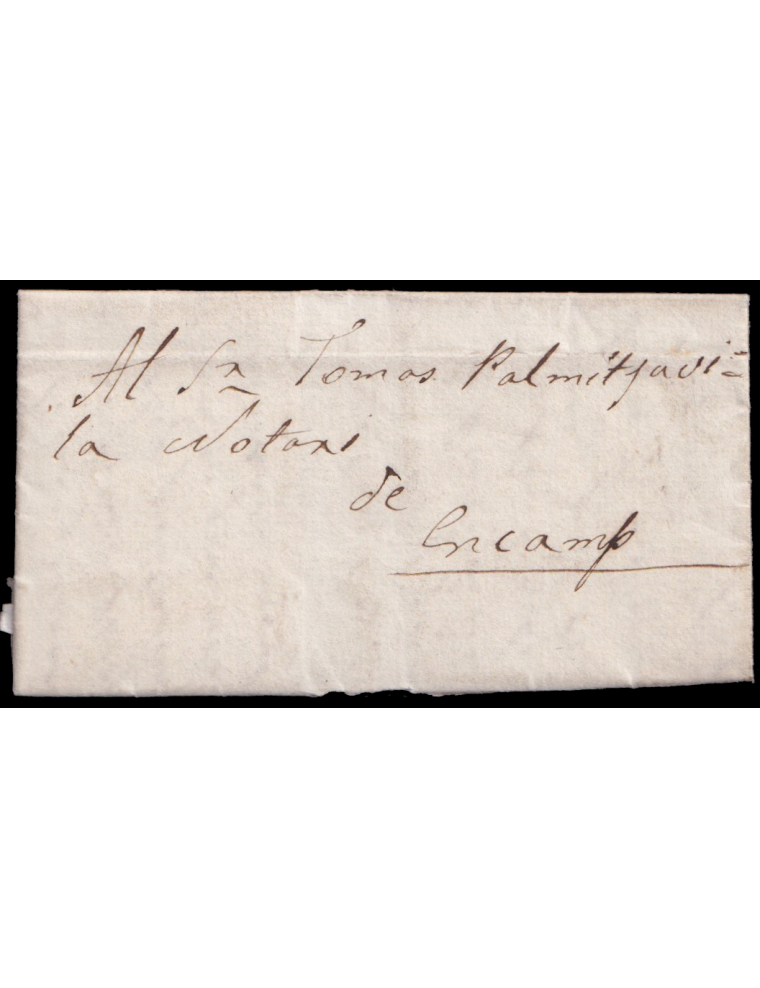 Al Sr Tomas Palmitjavi=
la Notari
de
Encamp